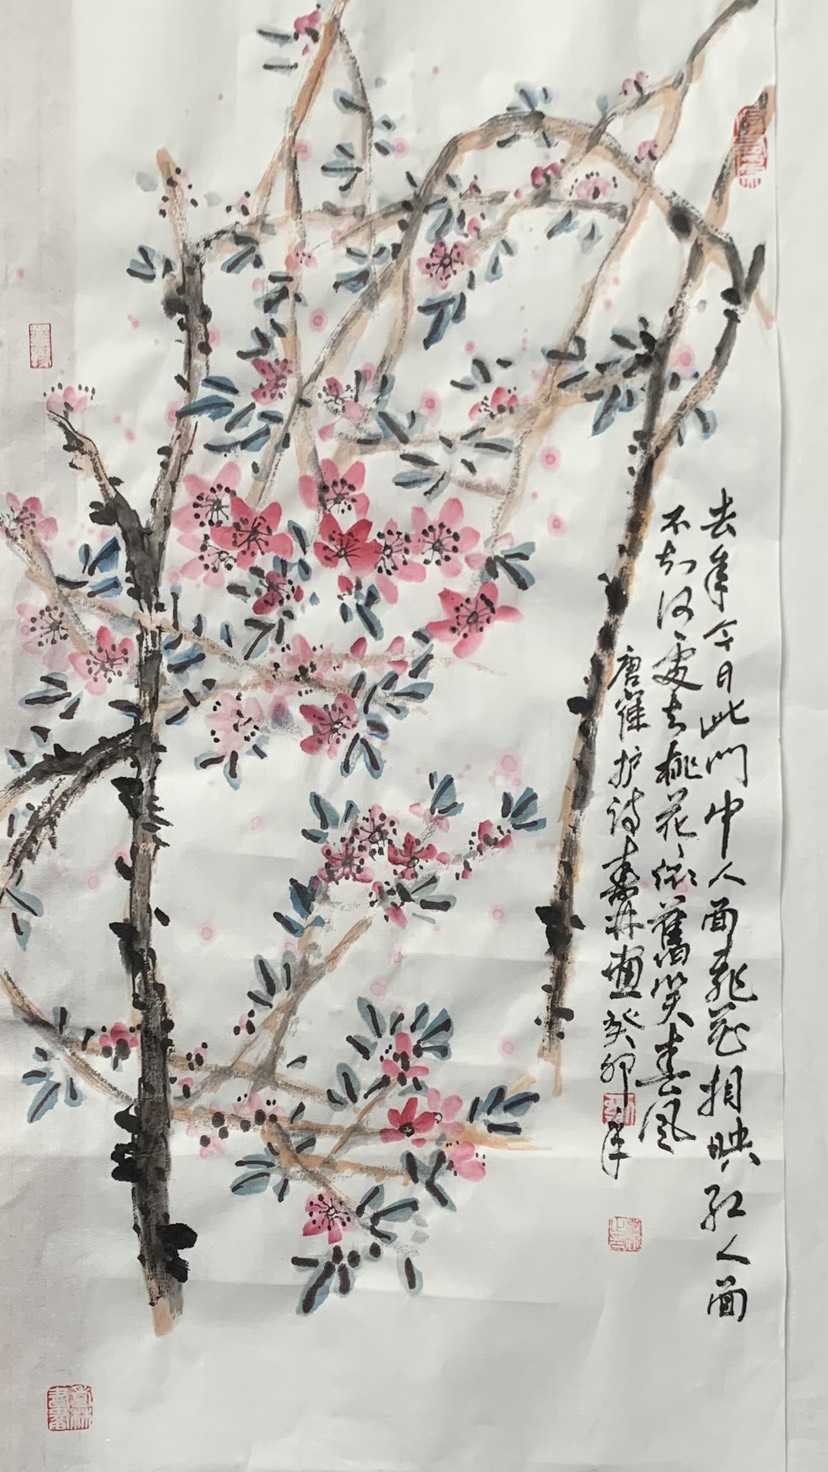 去年今日此門中人面桃花相映红人面
不知何处去桃花依舊笑春风
唐崔护诗壽林画癸卯年